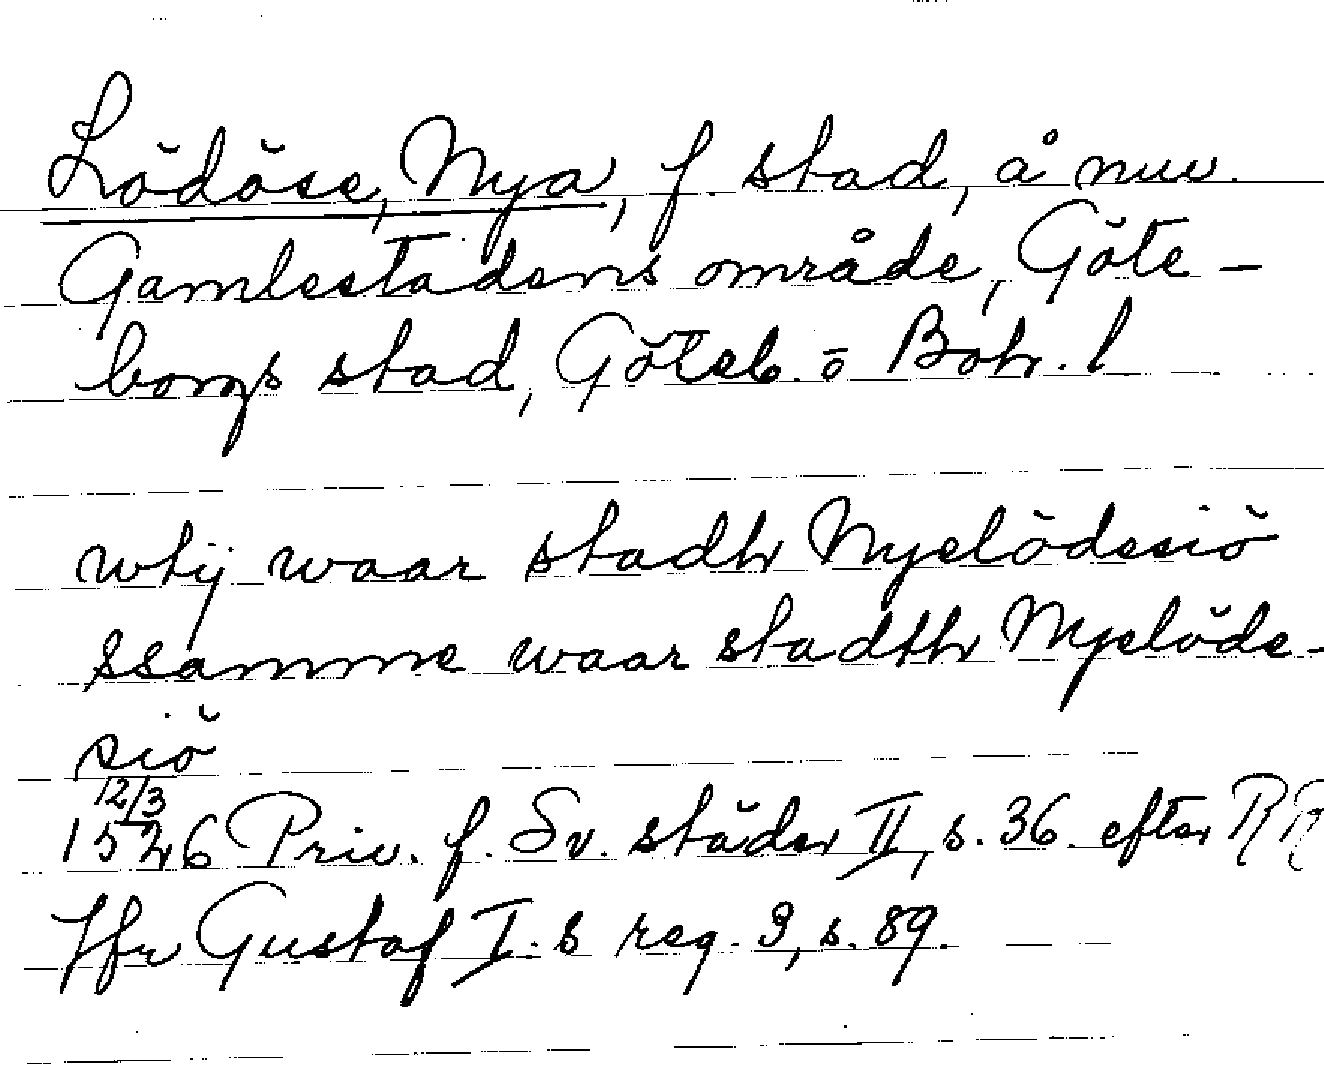 Lödöse, Nya, f. stad, å nuv.
Gamlestadens område, Göte-
borgs stad, Göteb. o Boh. l
wtij waar stadh Nyelödesiö
ssamme waar stadth Nyelöde-
siö
12/3
1526 Priv. f. Sv. städer II, s. 36 efter RR
Jfr Gustaf I.s reg. 3, s. 89.